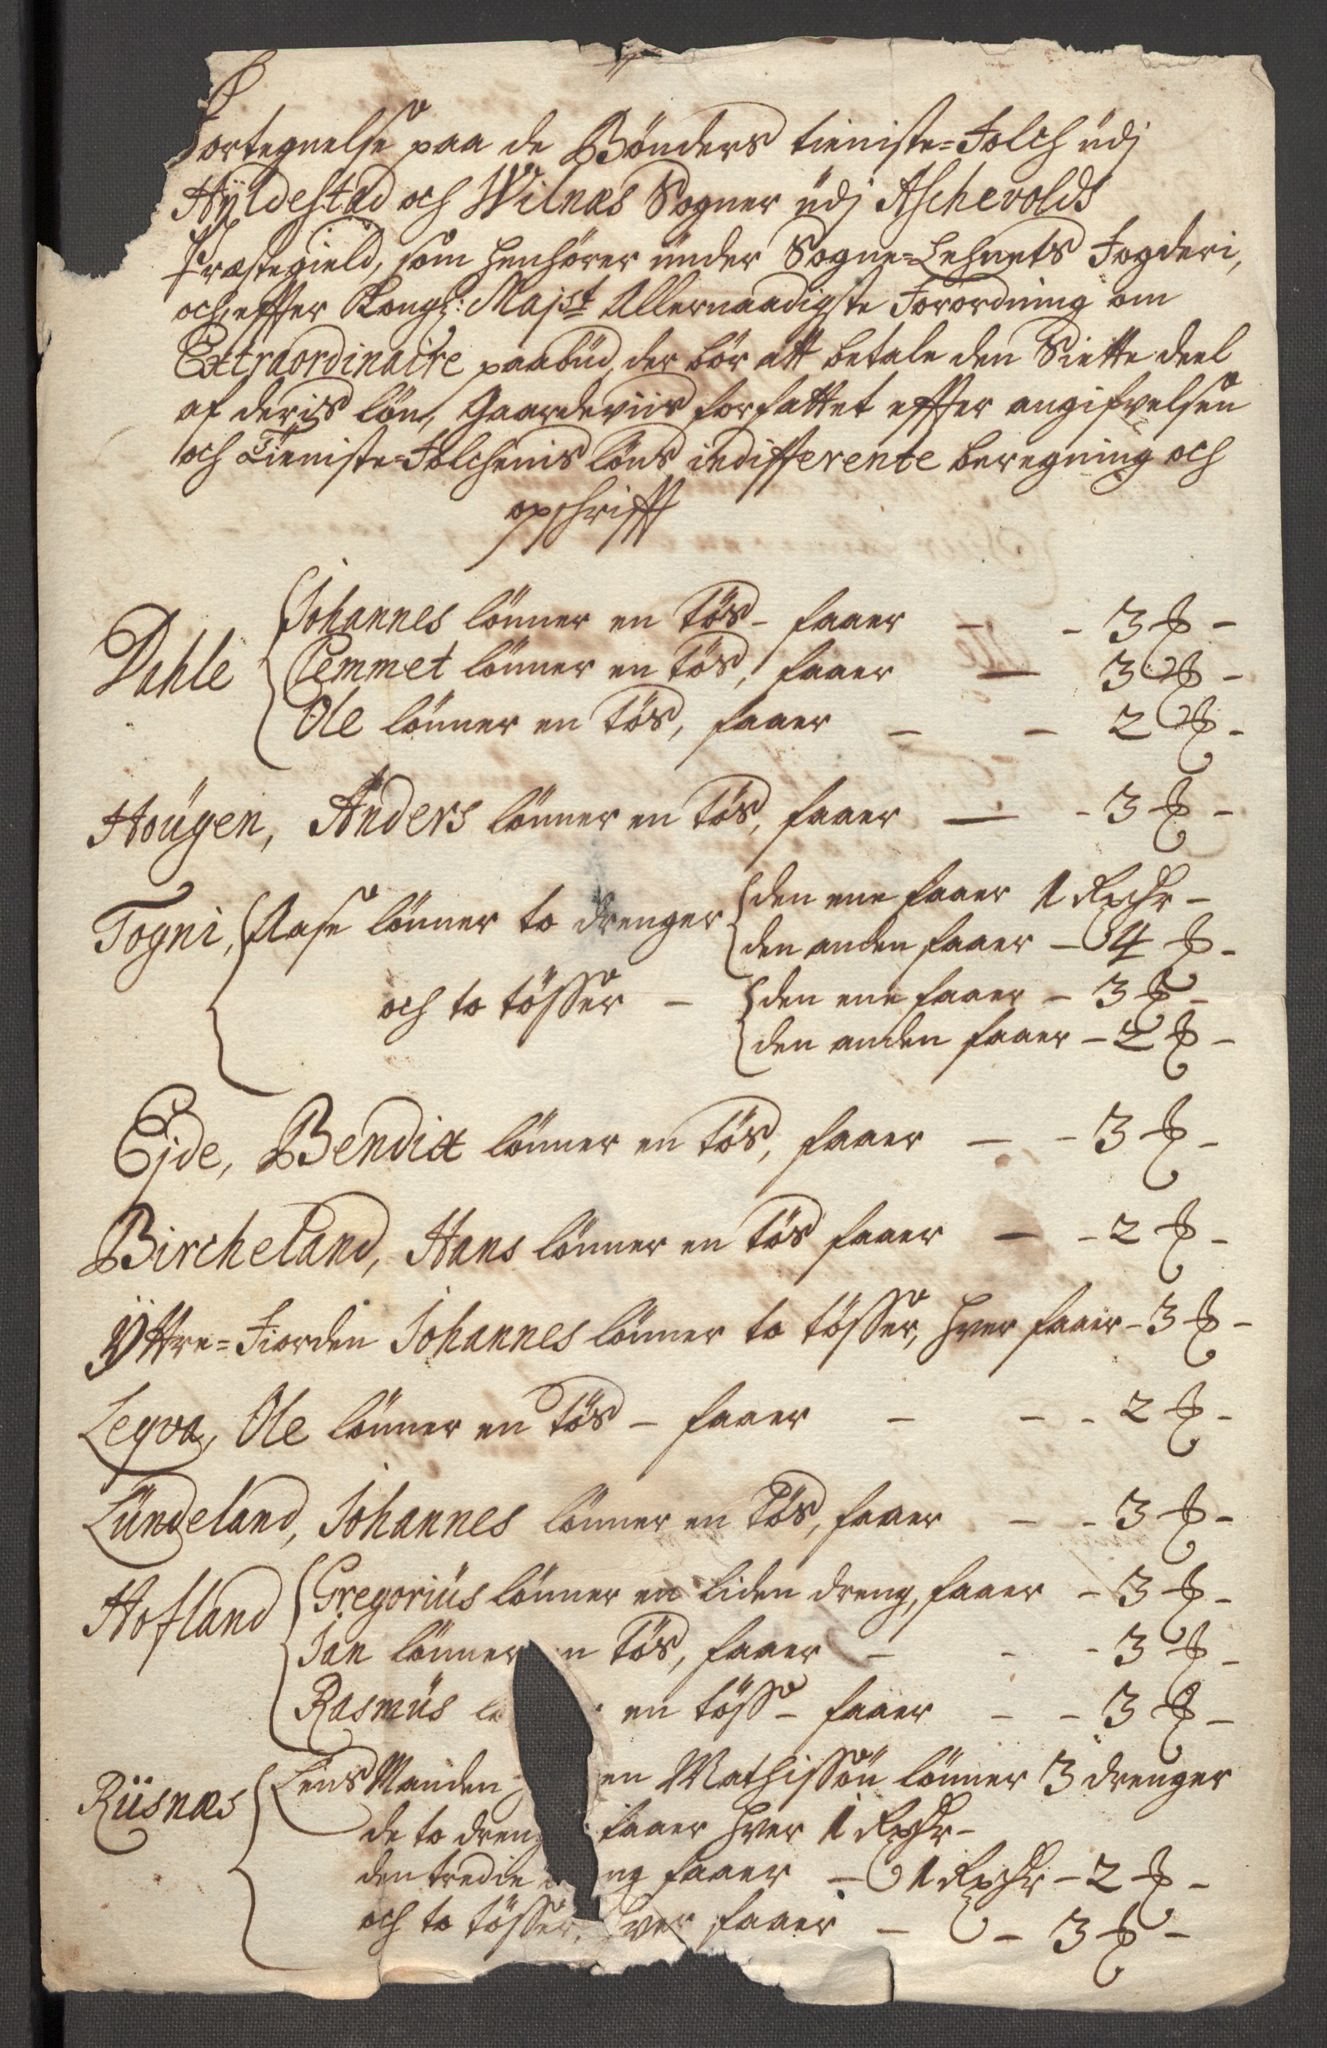 Fortegnelse paa de Bønders tieniste=Folch üdj
Hÿldestad och Wilnæs Sogner üdj Aschevolds
Præstegield, som henhører ünder Sogne=Lehnets Fogderi,
och effter Kongl: Maj.st Allernaadigste Forordning om
Extraordinaire paabüd, der bør att betale den Siette deel
af deris løn, Gaardeviis forfattet effter angifvelsen
och Tieniste=Folchenis løns indifferente beregning och
opschrifft
Dahle
Johannes lønner en Tøs - faaer - - 3 ß -
Clemmet lønner en Tøs, faaer — 3 ß -
Ole lønner en Tøs, faaer - - 2 ß -
Hoügen, Anders lønner en Tøs, faaer — - 3 ß -
Togni, Aase lønner to drenger den ene faaer 1 Rixdr -
den anden faaer - 4 ß -
och to tøsser - den ene faaer - 3 ß -
den anden faaer - 2 ß -
Ejde, Bendix lønner en Tøs, faaer - - 3 ß -
Bircheland, Hans lønner en Tøs faaer - - 2 ß -
Ÿttre=Fiorden Johannes lønner to tøsser, hver faaer - 3 ß -
Legva, Ole lønner en Tøs - faaer - - - 2 ß -
Lündeland, Johannes lønner en Tøs, faaer - - 3 ß -
Hofland
Gregoriüs lønner en liden dreng, faaer - 3 ß -
Jan lønner en Tøs, faaer - - - 3 ß -
Rasmüs en tøss - faaer - - 3 ß -
Riisnæs
LensManden en Mathissøn lønner 3 drenger
de to dreng faaer hver 1 Rixdr -
den tredie ng faaer - 1 Rixdr - 2 ß -
och to tøsser, hver faaer - - 3 ß -